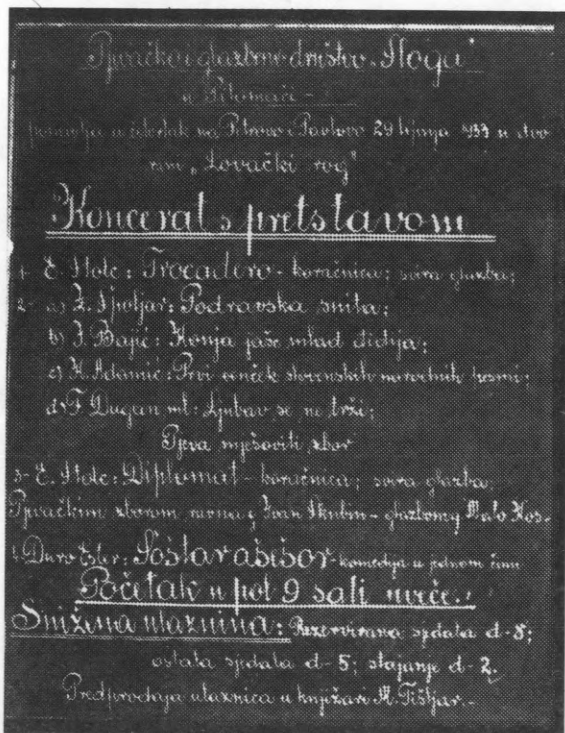 Pjevačko i glazbeno društvo „Sloga“
u Pitomači -
u četvrtak na Petrovo i Pavlovo 29 lipnja 937 u dvo
rani „Lovački rog“
Koncerat s pretstavom
1- E. Stolc: Trocadero - koračnica; svira glazba;
2- a) Z. Špoljar: Podravska suita;
b) J. Bajić: Konja jaše mlad didija;
c) K. Adamić: Prvi venček slovenskih narodnih pesmi;
d) F. Dugan ml: Ljubav se ne trži;
Pjeva mješoviti zbor
3- E. Stolc: Diplomat - koračnica; svira glazba.
Pjevačkim zborom ravna g Ivan - glazbom g Mato Kos.-
4. Đuro Ester: Šoštar ašešor - komedija u jednom činu
Početak u pol 9 sati uveče.!
Snižena ulaznina: Rezervirana sjedala d-8;
ostala sjedala d-5; stajanje d-2.
Predprodaja ulaznica u knjižari M. Tišljar.-